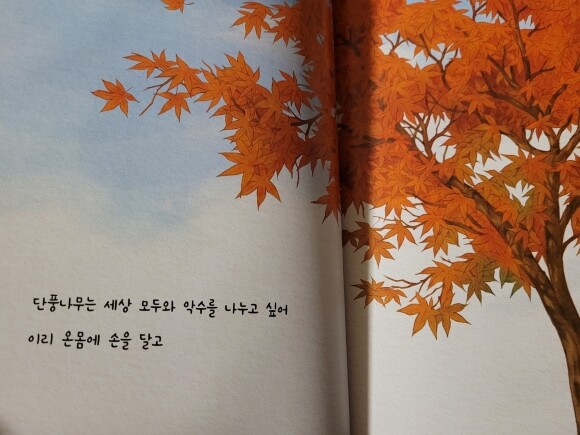 단풍나무는 세상 모두와 악수를 나누고 싶어
이리 온몸에 손을 달고